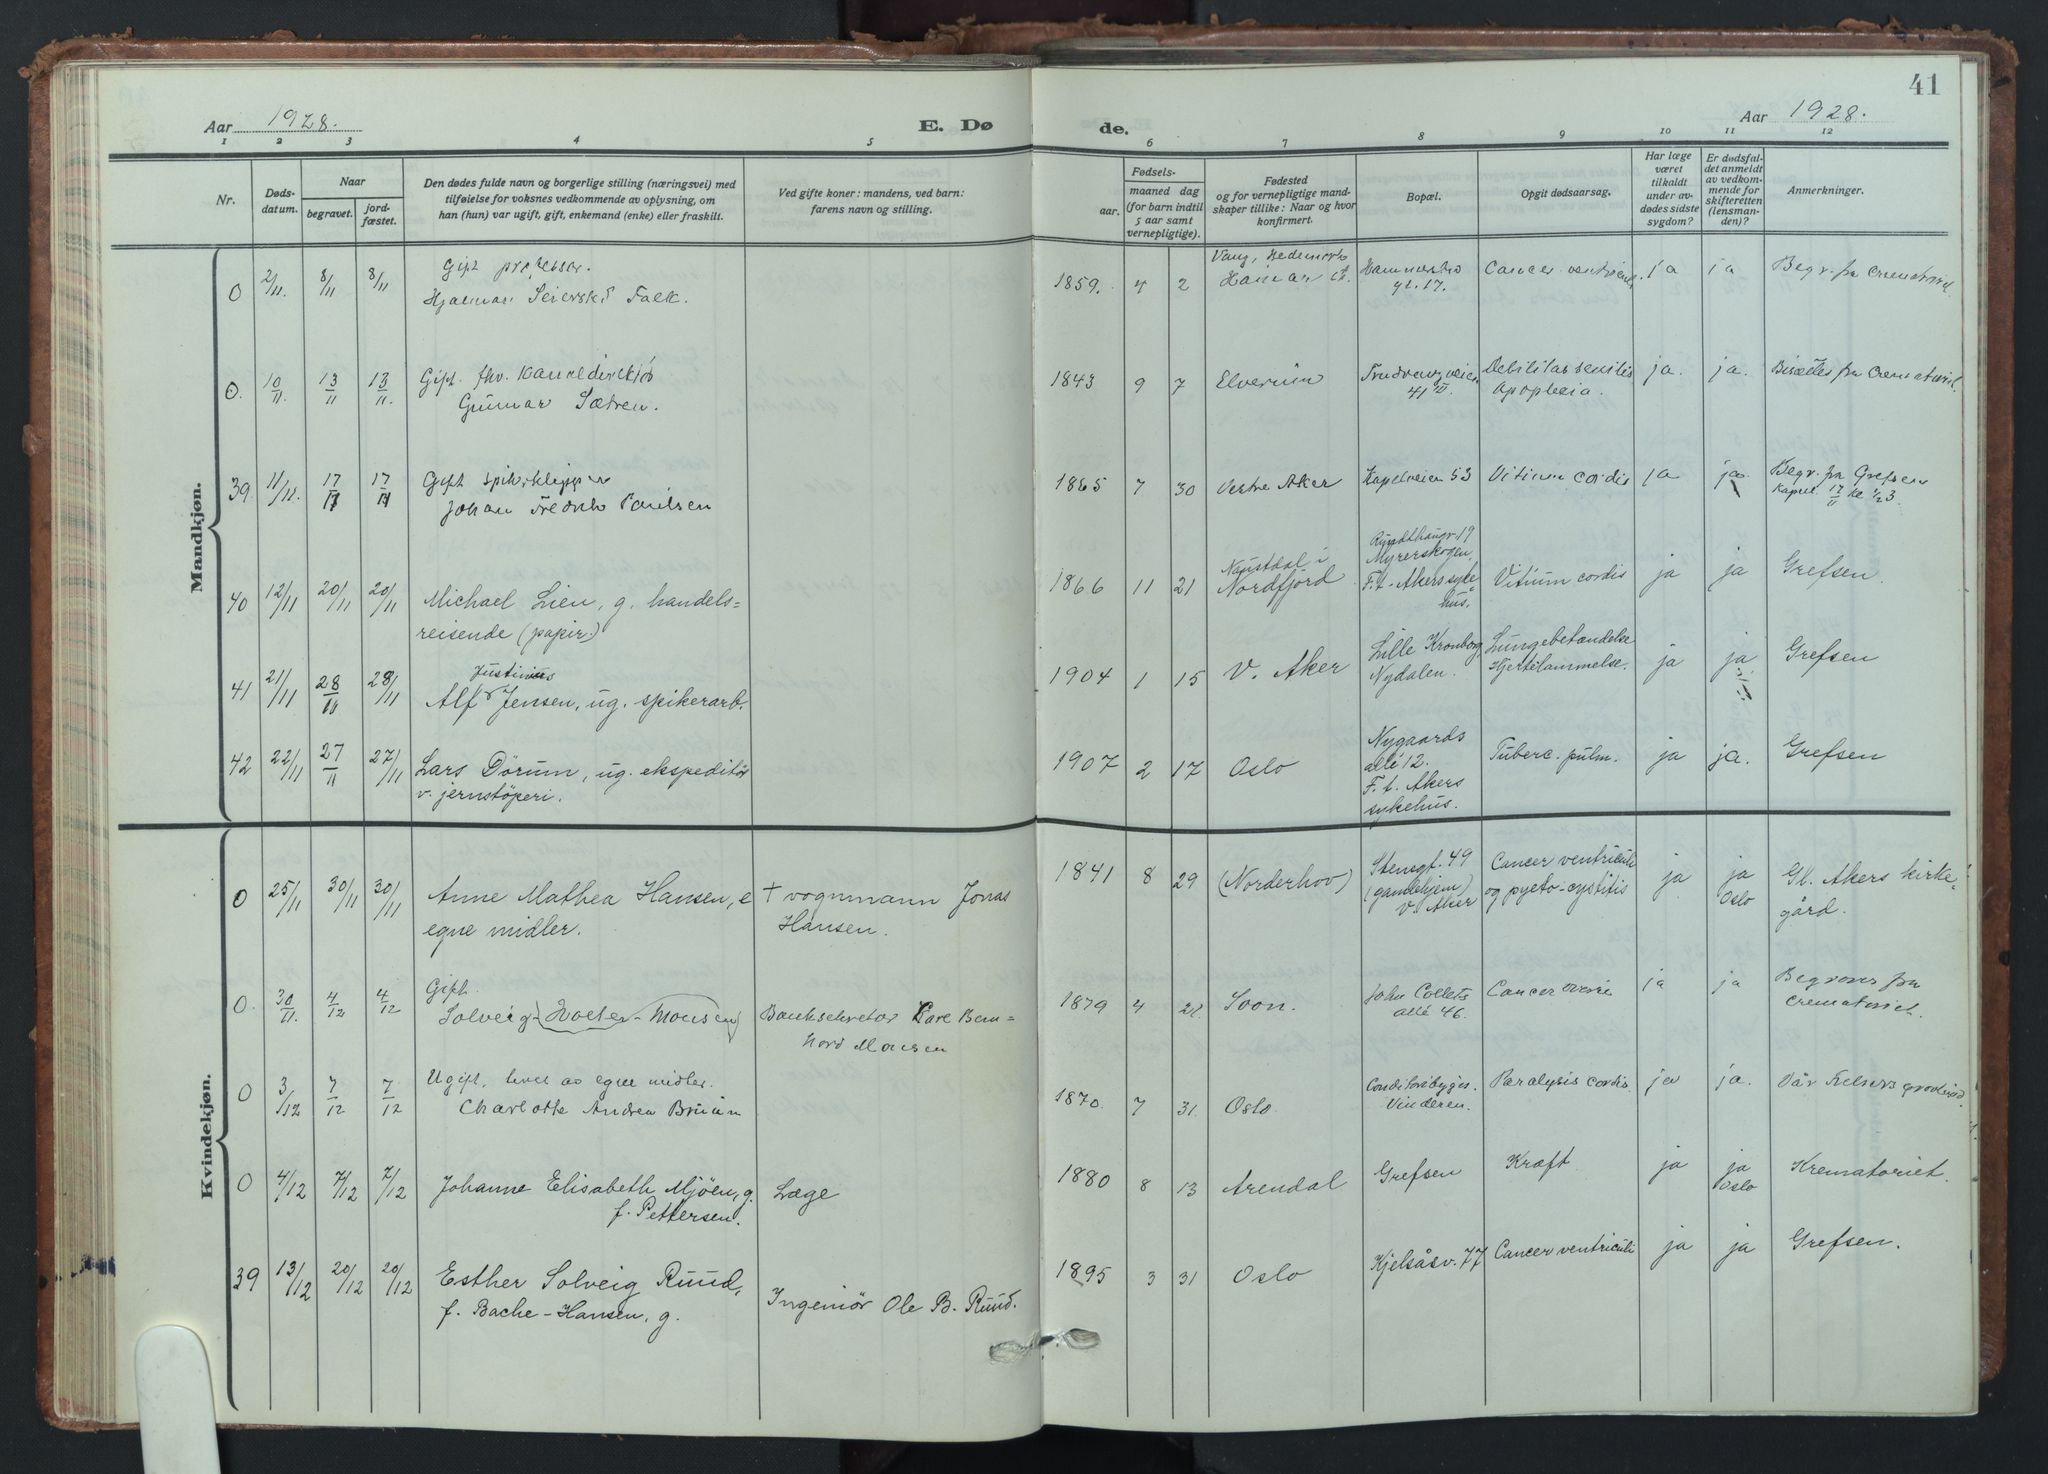 41
Aar 1928.
E. Dø de.
Aar 1928.
1 2 3 4 5 6 7 8 9 10 11 12
Nr.
Døds-
datum.
Naar
begravet.
jord-
fæstet.
Den dødes fulde navn og borgerlige stilling (næringsvei) med
tilføielse for voksnes vedkommende av oplysning, om
han (hun) var ugift, gift, enkemand (enke) eller fraskilt.
Ved gifte koner: mandens, ved barn:
farens navn og stilling.
Fødsels-
aar.
maaned dag
(for barn indtil
5 aar samt
vernepligtige).
Fødested
og for vernepligtige mand-
skaper tillike: Naar og hvor
konfirmert.
Bopæl.
Opgit dødsaarsag.
Har læge
været
tilkaldt
under av-
dødes sidste
sygdom?
Er dødsfal-
det anmeldt
av vedkom-
mende for
skifteretten
(lensman-
den)?
Anmerkninger.
Mandkjøn.
0 2/11. 8/11 8/11
Gift professor.
Hjalmar Falk.
1859. 4 2
Vang, Hedemark
Hamar
17.
Cancer ventriculi
ja ja
Begr. fra Crematoriet.
0. 10/11. 13/11 13/11.
Gift. fhv. kanaldirektør
Gunnar Sætren.
1843 9 7
Elverum
41 II.
Debilitas senilis
Apoplexia.
ja. ja.
Bisættes fra Crematoriet.
39. 11/11. 17/11 17/11
Gift spikerklipper
Johan Fredrik Paulsen
1865 7 30
Vestre Aker
Kapelveien 53
Vitium cordis
ja ja
Begr. fra Grefsen
Kapel 17/11 kl 1/2 3
40 12/11 20/11 20/11
Michael Lien, g. handels=
reisende (papir.)
1866 11 21
Naustdal i
Nordfjord
19
Myrerskogen,
F.t. Akers syke
hus.
Vitium cordis
ja ja
Grefsen
41 21/11 28/11 28/11
Justinius
Alf Jensen, ug. spikerarb.
1904 1 15
V. Aker
Lille Kronborg,
Nydalen.
Lungebetændelse
Hjertelammelse.
ja ja
Grefsen
42 22/11 27/11 27/11
Lars Dörum, ug. ekspeditör
v. jernstöperi.
1907 2 17
Oslo
Nygaards
allé 12.
F.t. Akers
sykehus.
Tuberc. pulm.
ja ja.
Grefsen
Kvindekjøn.
0 25/11 30/11 30/11
Anne Mathea Hansen, e
egne midler.
+ vognmann Jonas
Hansen.
1841 8 29
(Norderhov)
Stensgt. 49
(gamlehjem)
V. Aker
Cancer ventriculi
og pyelo-cystitis
ja ja
Oslo
Gl. Akers kirke-
gård.
0. 30/11. 4/12 4/12
Gift.
Solveig Holter-Monsen
Banksekretær Kare Bern=
hard Monsen
1879 4
Soon.
John Collets
allé 46.
Cancer ovarii
ja ja
Begraves fra
Crematoriet.
0 3/12 7/12 7/12
Ugift, levet av egne midler.
Charlotte Andrea Bruun
1870. 7 31.
Oslo.
Vinderen.
Paralysis cordis.
ja ja.
Vår Frelsers gravlund.
0 4/12 7/12 7/12
Johanne Elisabeth Mjöen, g.
f. Pettersen.
Læge
1880 8 13
Arendal
Grefsen
Kræft
ja ja
Oslo
Krematoriet.
39 13/12 20/12 20/12
Esther Solveig Ruud,
f. Bache-Hansen, g.
Ingeniör Ole B. Ruud.
1895 3 31
Oslo
Kjelsåsv. 77
Cancer ventriculi
ja ja
Grefsen.